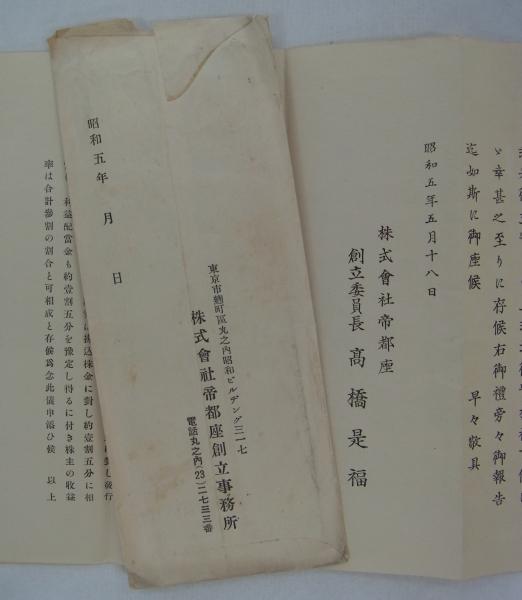 ゝ幸甚之至りに存候右御禮旁々御報告
迄如斯に御座候 早々敬具
昭和五年五月十八日
株式會社帝都座
創立委員長 髙橋是福
昭和五年 月 日
東京市麹町區丸之內昭和ビルヂング三一七
株式會社帝都座創立事務所
電話丸之內(23)二七三三番
込株金に對し約壹割五分に相
利益配當金も約壹割五分を豫定し得るに付き株主の收益
率は合計參割の割合と可相成と存候爲念此儀申添ひ候 以上